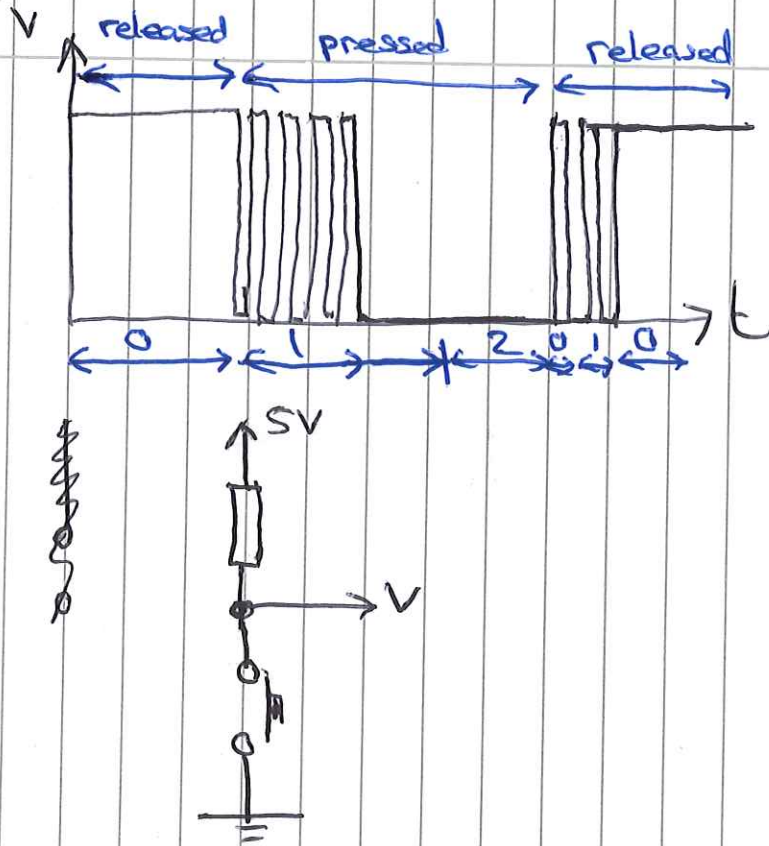 V
released pressed released
t
0 1 2 0 1 0
5V
V